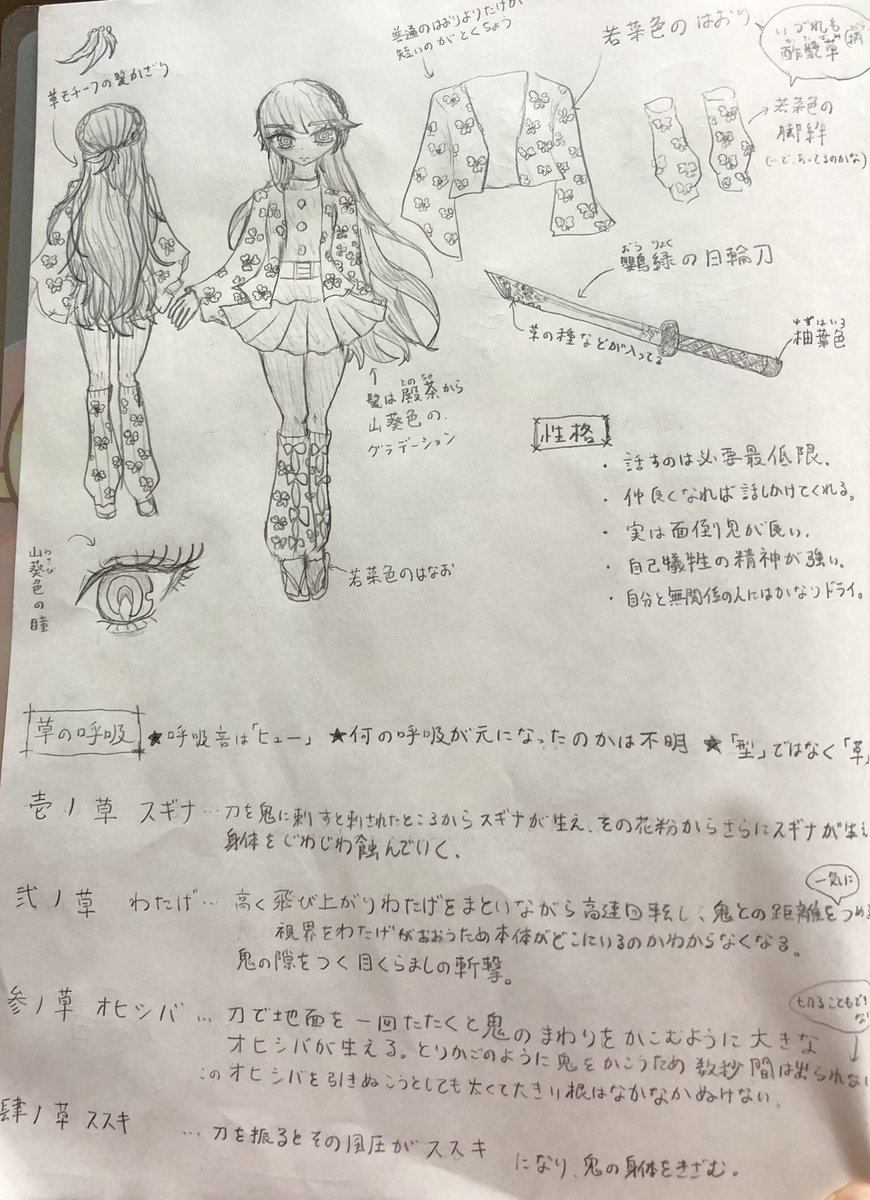 草モチーフの髪かざり
普通のはおりよりたけが
短いのがとくちょう
若菜色のはおり
いづれも
酢漿草柄
若菜色の
脚絆
(…で、あってるのかな)
おうりょく
鸚緑の日輪刀
草の種などが入ってる
ゆずはいろ
柚葉色
とのちゃ
髪は殿茶から
山葵色の
グラデーション
わさび
山葵色の瞳
若菜色のはなお
性格
・話すのは必要最低限。
・仲良くなれば話しかけてくれる。
・実は面倒見が良い。
・自己犠牲の精神が強い。
・自分と無関係の人にはかなりドライ。
草の呼吸 ★呼吸音は「ヒュー」 ★何の呼吸が元になったのかは不明 ★「型」ではなく「草」
壱ノ草 スギナ…刀を鬼に刺すと刺されたところからスギナが生え、その花粉からさらにスギナが生え
身体をじわじわ蝕んでいく。
一気に
弐ノ草 わたげ…高く飛び上がりわたげをまといながら高速回転し、鬼との距離をつめる
視界をわたげがおおうため本体がどこにいるのかわからなくなる。
鬼の隙をつく目くらましの斬撃。
切ることもでき
な
参ノ草 オヒシバ…刀で地面を一回たたくと鬼のまわりをかこむように大きな
オヒシバが生える。とりかごのように鬼をかこうため数秒間は出られない
このオヒシバを引きぬこうとしても太くて大きい根はなかなかぬけない。
肆ノ草 ススキ …刀を振るとその風圧がススキになり、鬼の身体をきざむ。